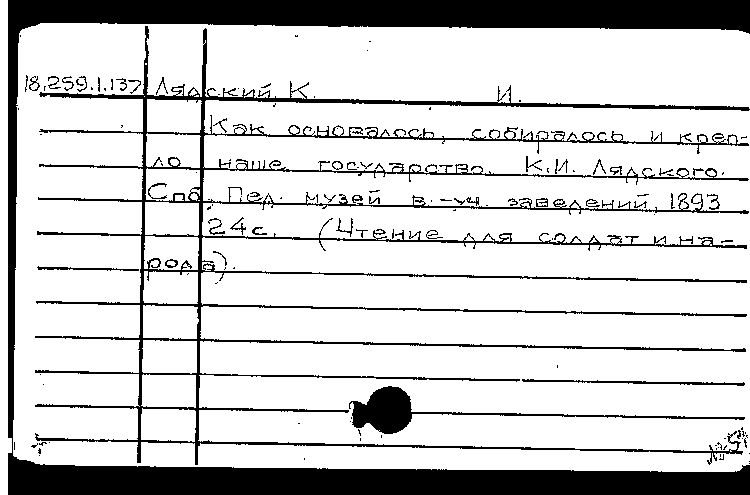 18.259.1.137 Лядский, К. И.
Как основалось, собиралось и креп-
ло наше государство. К.И. Лядского.
Спб, Пед. музей в.-уч. заведений, 1893
24с. (Чтение для солдат и на-
рода).